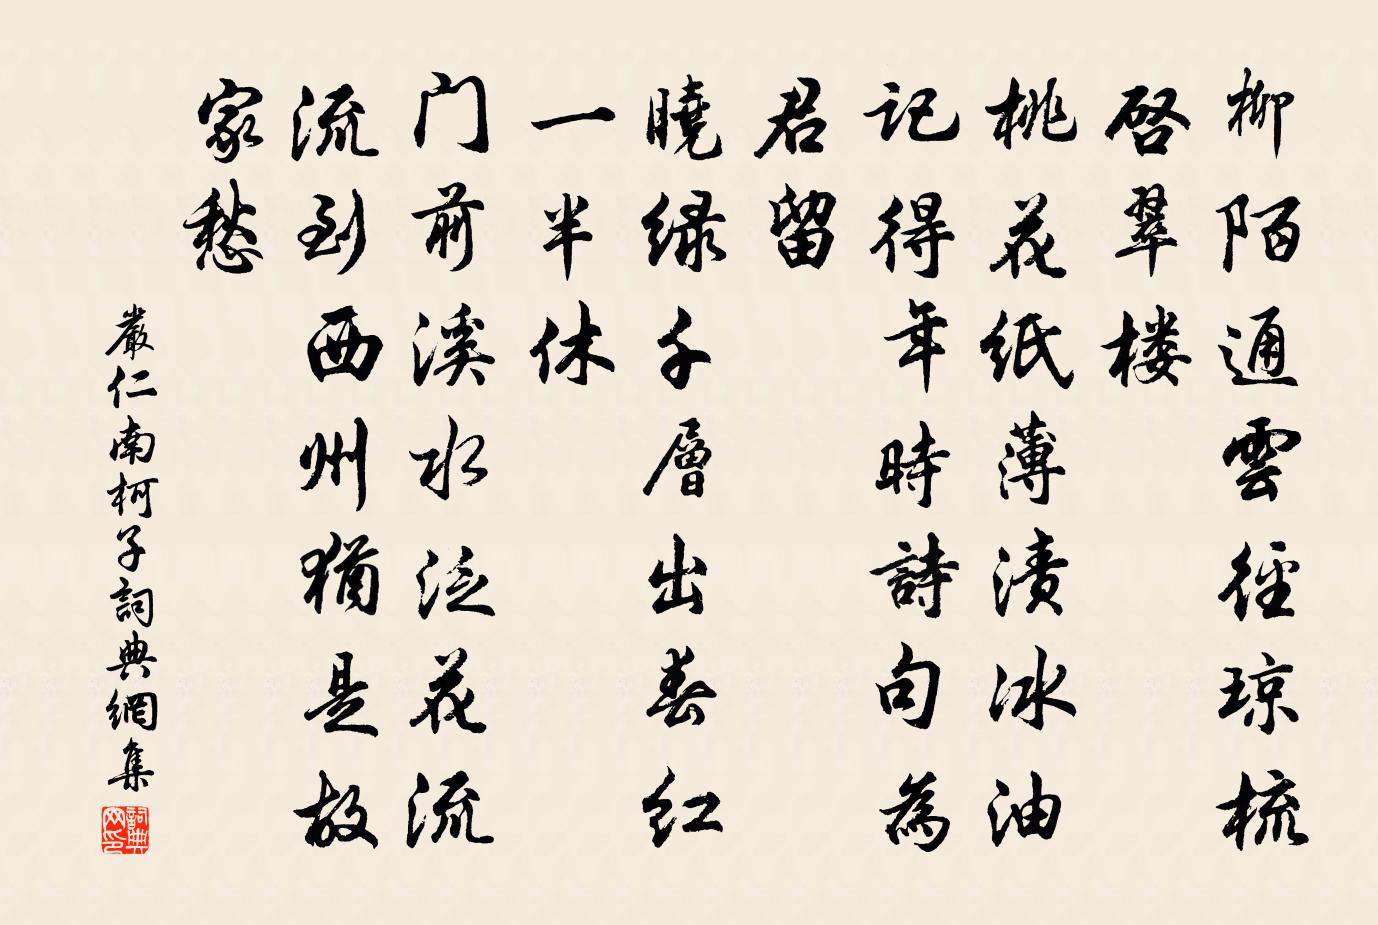 柳陌通雲徑琼梳
啓翠楼
桃花紙薄漬冰油
記得年時詩句為
君留
曉緑千層出春红
一半休
门前溪水泛花流
流到西州猶是故
家愁
嚴仁南柯子詞典網集
詞典網印